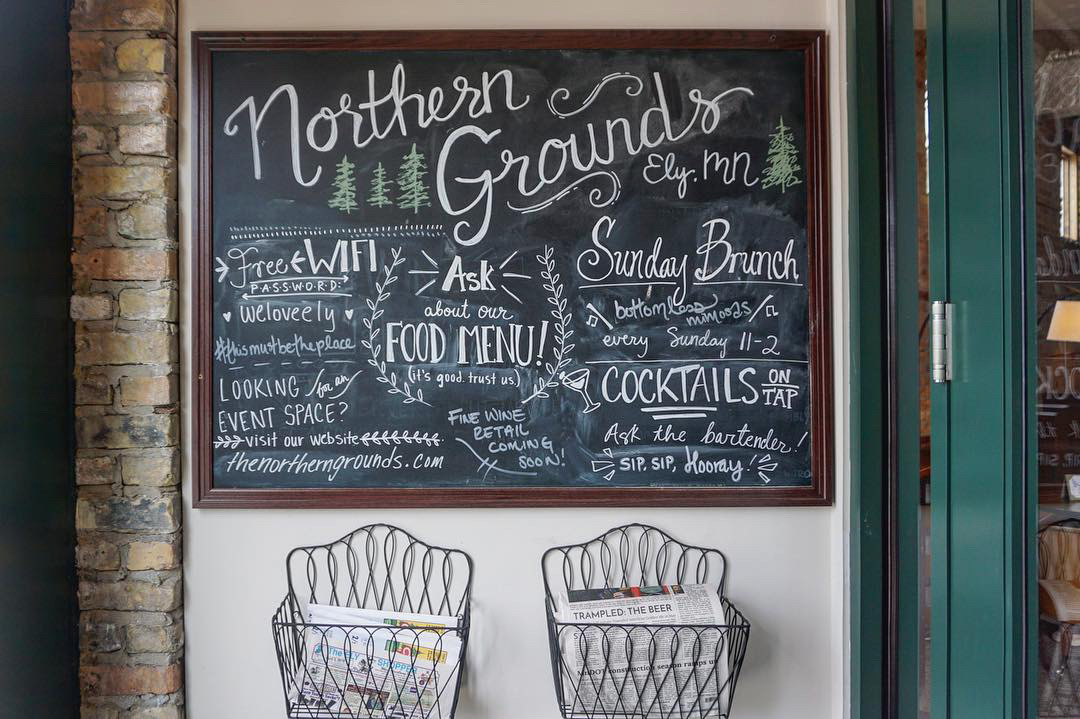 Northern
Grounds
Ely, MN
Free WIFI
PASSWORD:
weloveely
#thismustbetheplace
LOOKING for an
EVENT SPACE?
visit our website
thenortherngrounds.com
Ask
about our
FOOD MENU!
(it's good. trust us)
FINE WINE
RETAIL
COMING
SOON!
Sunday Brunch
bottomless mimosas
every Sunday 11-2
COCKTAILS ON TAP
Ask the bartender!
SIP, SIP, Hooray!
The ELY
SHOPPER
TRAMPLED: THE BEER
MnDOT construction season ramps u